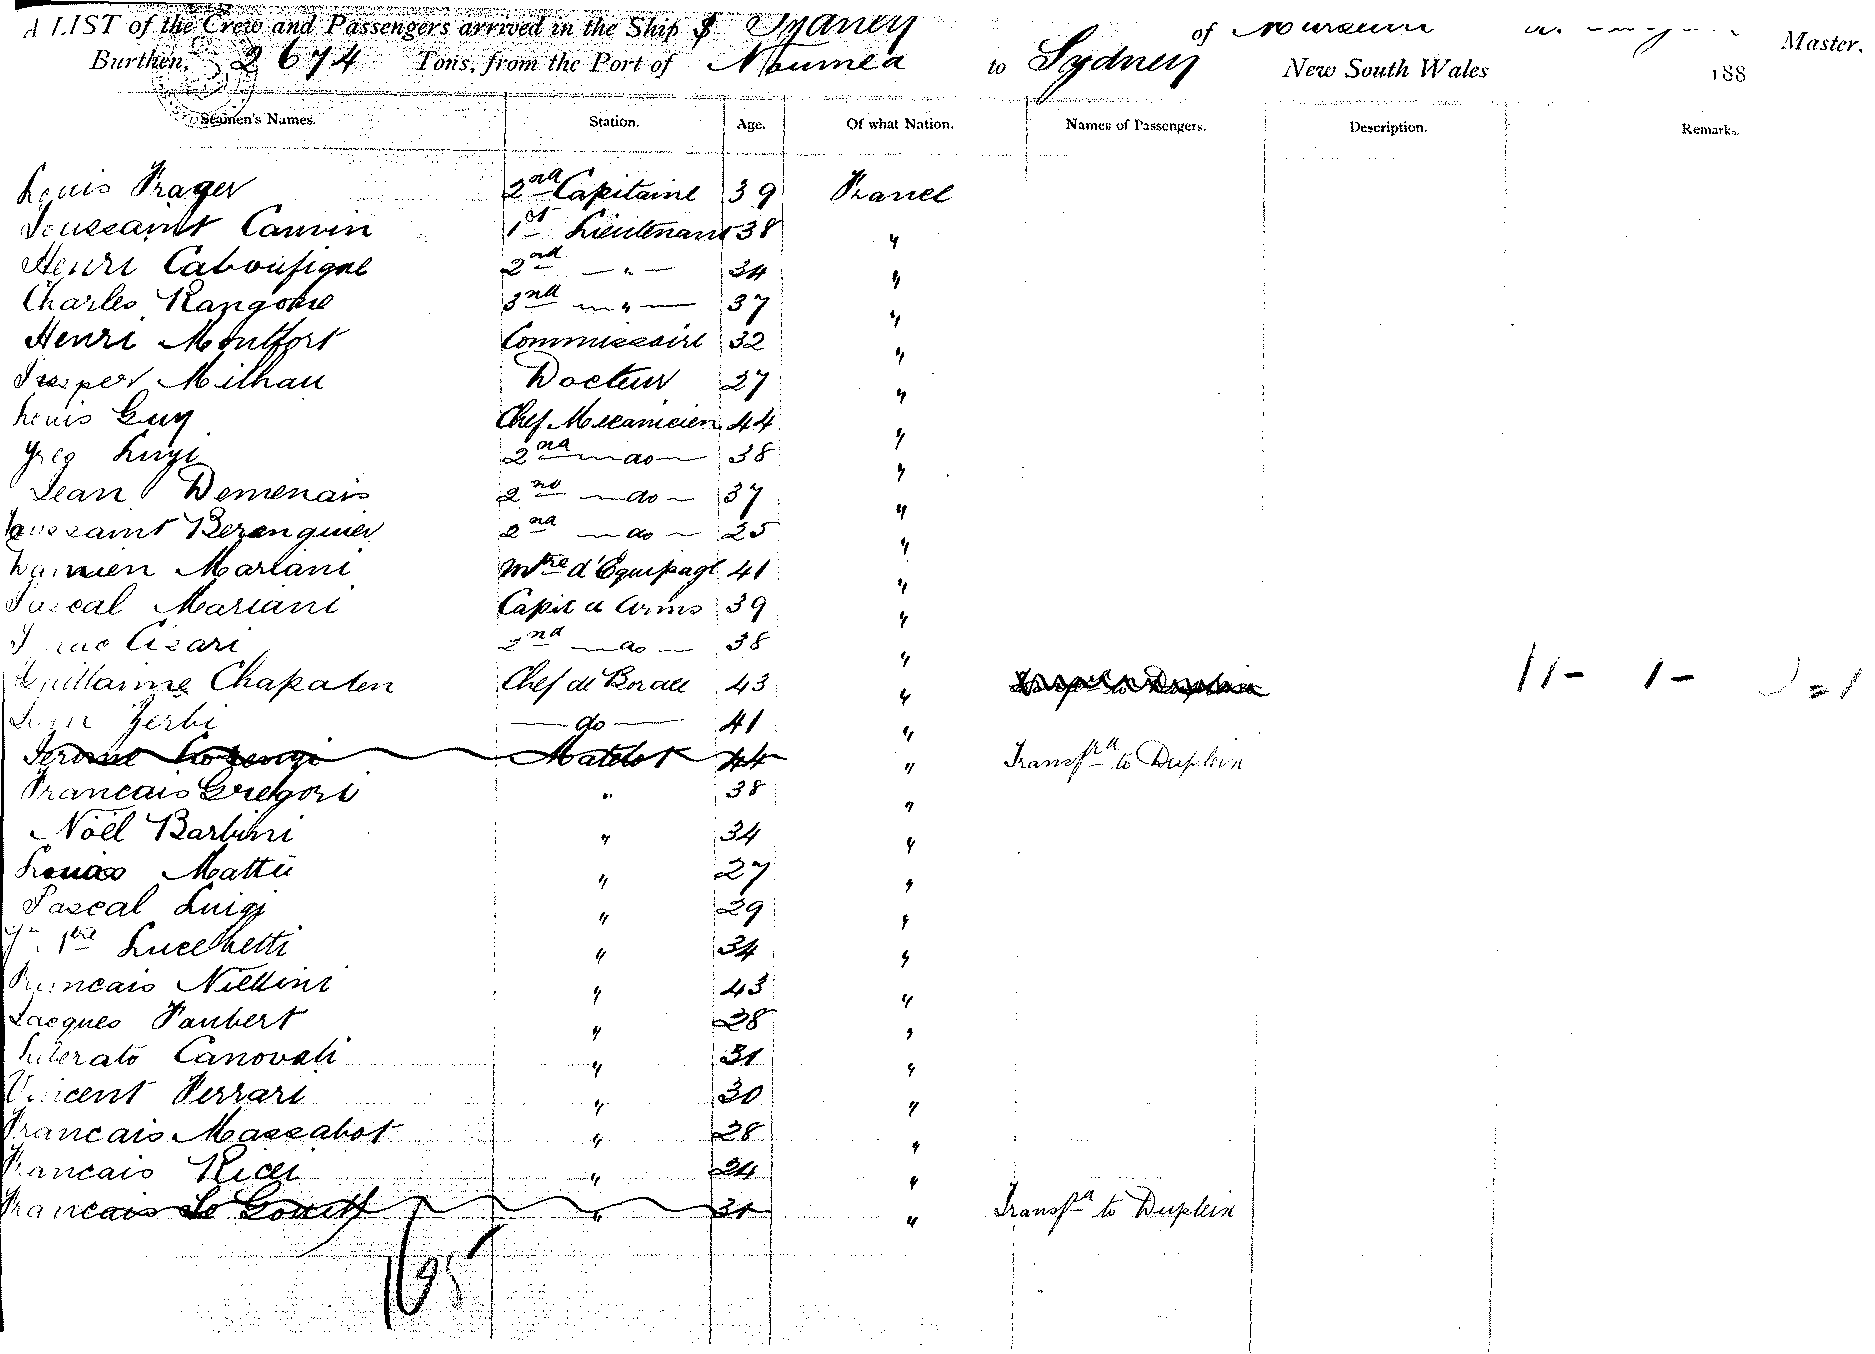 A LIST of the Crew and Passengers arrived in the Ship of Master,
Burthen, 2674 Tons, from the Port of Noumea to Sydney New South Wales 188
Seamen's Names. Station. Age. Of what Nation. Names of Passengers. Description. Remarks.
Louis Frager 2nd Capitaine 39 France
Toussaint Cauvin 1st Lieutenant 38 "
Henri Caboufigue 2nd — " — 34 "
Charles 3rd — " — 37 "
Henri Montfort Commissaire 32 "
Milhau Docteur 27 "
Louis Guy Chef Mecanicien 44 "
Luigi 2nd — do — 38 "
Jean Demenais 2nd — do — 37 "
Toussaint Berenguier 2nd — do — 25 "
Damien Mariani Mtre d'Equipage 41 "
Pascal Mariani Capit d'Arms 39 "
Cesari 2nd — do — 38 "
Guillaume Chapalen Chef de Bordee 43 "
Zerbi — do — 41 "
Jerome Matelot 44 " Transfrd to Duplein
Francais Gregori " 38 "
Noël Barbini " 34 "
Louis Mattei " 27 "
Pascal Luigi " 29 "
Lucchetti " 34 "
Francais " 43 "
Jacques Faubert " 28 "
Liberato Canovati " 31 "
Vincent Ferrari " 30 "
Francais Massabot " 28 "
Francais Ricci " 24 "
Francais Le " 31 " Transfrd to Duplein